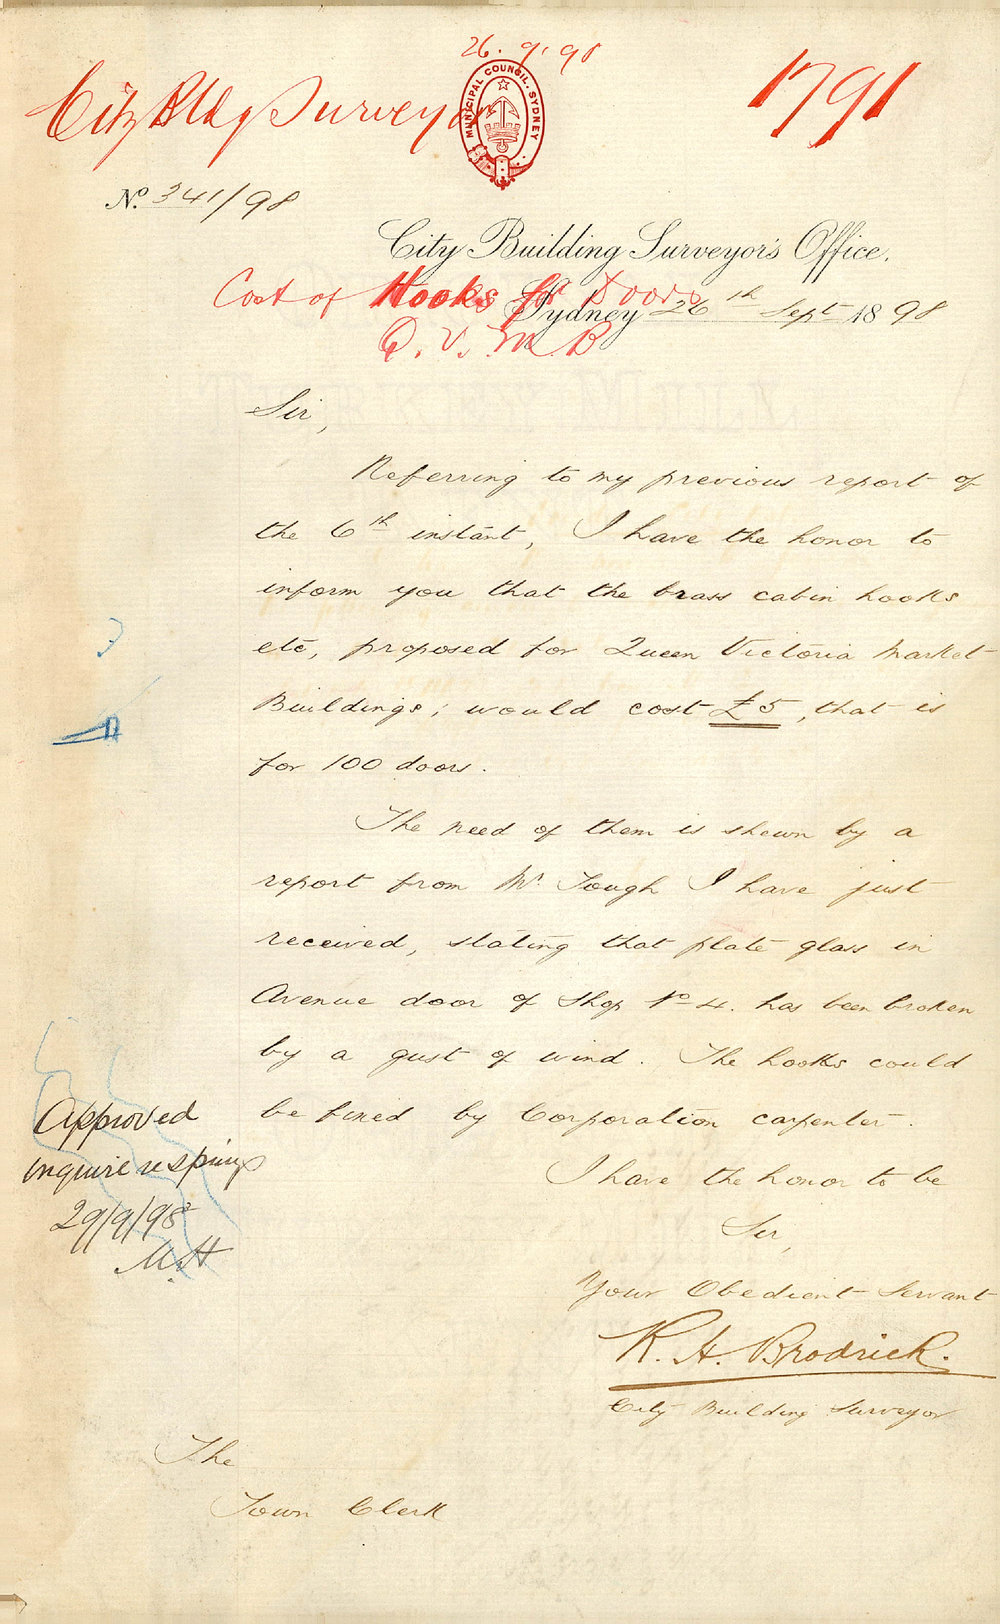 26.9.98
City Bldg Surveyor
1791
MUNICIPAL COUNCIL. SYDNEY
No. 341/98
City Building Surveyor's Office,
Cost of Hooks for Doors
Sydney 26th Sept 1898
Q.V.M.B
Sir,
Referring to my previous report of
the 6th instant, I have the honor to
inform you that the brass cabin hooks
etc, proposed for Queen Victoria Market
Buildings; would cost £5, that is
for 100 doors.
The need of them is shewn by a
report from Mr. Tough I have just
received, stating that plate glass in
Avenue door of Shop No 4. has been broken
by a gust of wind. The hooks could
be fixed by Corporation carpenter.
Approved
inquire re springs
29/9/98
M.H
I have the honor to be
Sir,
Your Obedient Servant
R. H. Brodrick.
City Building Surveyor
The
Town Clerk